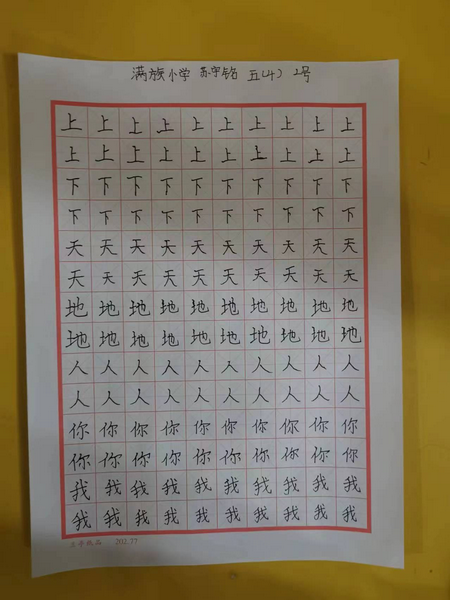 满族小学 苏宇铭 五(4) 2号
上 上 上 上 上 上 上 上 上 上
上 上 上 上 上 上 上 上 上 上
下 下 下 下 下 下 下 下 下 下
下 下 下 下 下 下 下 下 下 下
天 天 天 天 天 天 天 天 天 天
天 天 天 天 天 天 天 天 天 天
地 地 地 地 地 地 地 地 地 地
地 地 地 地 地 地 地 地 地 地
人 人 人 人 人 人 人 人 人 人
人 人 人 人 人 人 人 人 人 人
你 你 你 你 你 你 你 你 你 你
你 你 你 你 你 你 你 你 你 你
我 我 我 我 我 我 我 我 我 我
我 我 我 我 我 我 我 我 我 我